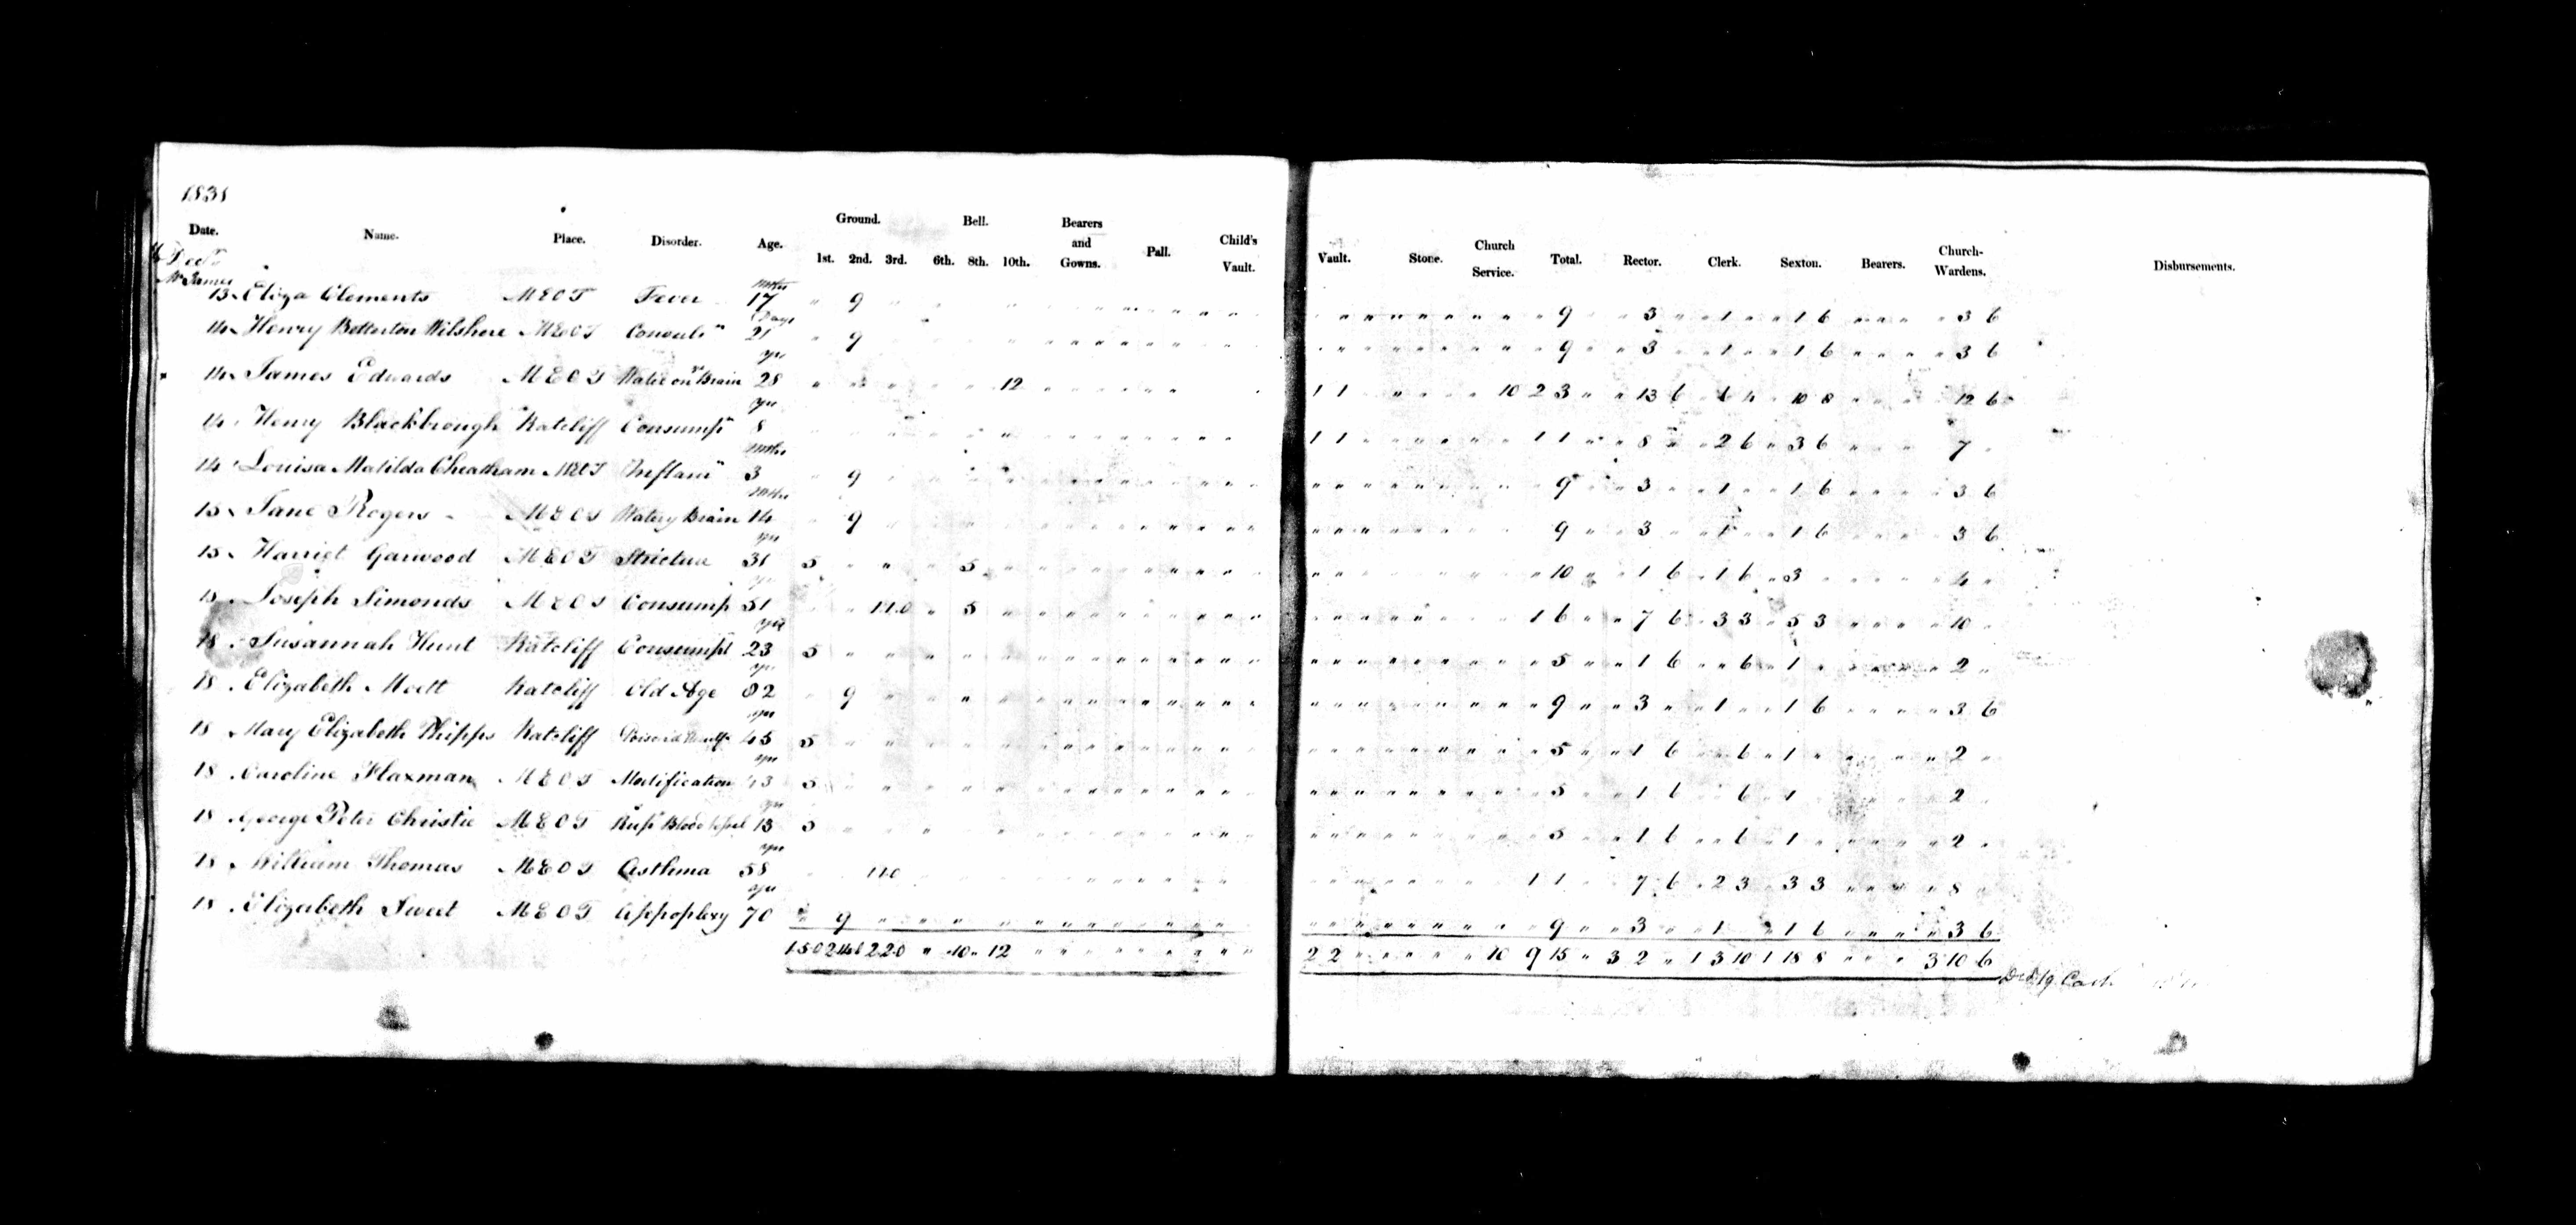 1831
Date. Name. Place. Disorder. Age. Ground. 1st. 2nd. 3rd. Bell. 6th. 8th. 10th. Bearers and Gowns. Pall. Child's Vault. Vault. Stone. Church Service. Total. Rector. Clerk. Sexton. Bearers. Church-Wardens. Disbursements.
Mr James
13 Eliza Clements M E O T Fever mths 17 9 9 3 1 1 6 3 6
14 Henry Betterton Wilshere M E O T Convuls Days 21 9 9 3 1 1 6 3 6
14 James Edwards M E O T Water on Brain yrs 28 12 1 1 10 2 3 13 6 6 4 10 8 12 6
14 Henry Blackbrough Ratcliff Consump yrs 8 1 1 1 1 8 2 6 3 6 7
14 Louisa Matilda Cheatham M E O T Inflam mths 3 9 9 3 1 1 6 3 6
15 Jane Rogers M E O T Watery Brain mths 14 9 9 3 1 1 6 3 6
15 Harriet Garwood M E O T Stricture yrs 31 5 5 10 1 6 1 6 3 4
15 Joseph Simonds M E O T Consump 51 1 1 0 5 1 6 7 6 3 3 5 3 10
18 Susannah Hunt Ratcliff Consumpt yrs 23 5 5 1 6 6 1 2
18 Elizabeth Moett Ratcliff Old Age yrs 82 9 9 3 1 1 6 3 6
18 Mary Elizabeth Phipps Ratcliff yrs 45 5 5 1 6 6 1 2
18 Caroline Flaxman M E O T Mortification yrs 43 5 5 1 6 6 1 2
18 George Peter Christie M E O T Rup Blood Vessel yrs 13 5 5 1 6 6 1 2
18 William Thomas M E O T Asthma yrs 58 1 1 0 1 1 7 6 2 3 3 3 8
18 Elizabeth Sweet M E O T Appoplexy yrs 70 9 9 3 1 1 6 3 6
1 5 0 2 2 0 10 12 2 2 10 9 15 3 2 1 3 10 1 18 8 3 10 6